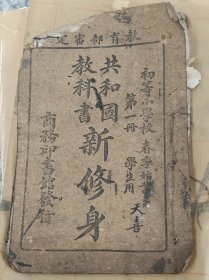 教育部審定
初等小學校 春季始業
第一冊 學生用
天喜
共和國
教科書
新修身
商務印書館發行